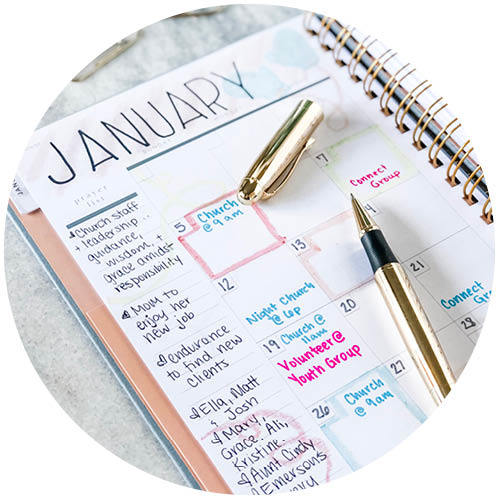 JANUARY
prayer
list
Church staff
+ leadership...
guidance,
wisdom, +
grace amidst
responsibility
Mom to
enjoy her
new job
endurance
to find new
clients
Ella, Matt
& Josh
Mary,
Grace, Ali,
Kristine,
Aunt Cindy
Emersons
5
Church
@ 9am
7
Connect
Group
12
Night Church
@ 6p
13
14
19
Church @
11am
Volunteer @
Youth Group
20
21
Connect
26
Church
@ 9am
27
28